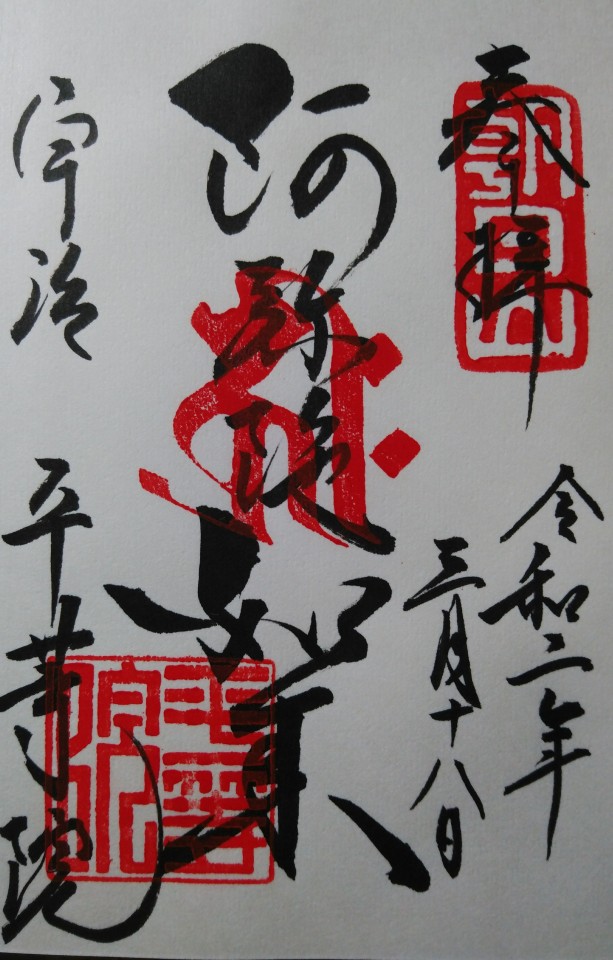 奉拝
朝日山
令和二年
三月十八日
阿弥陀如来
宇治 平等院